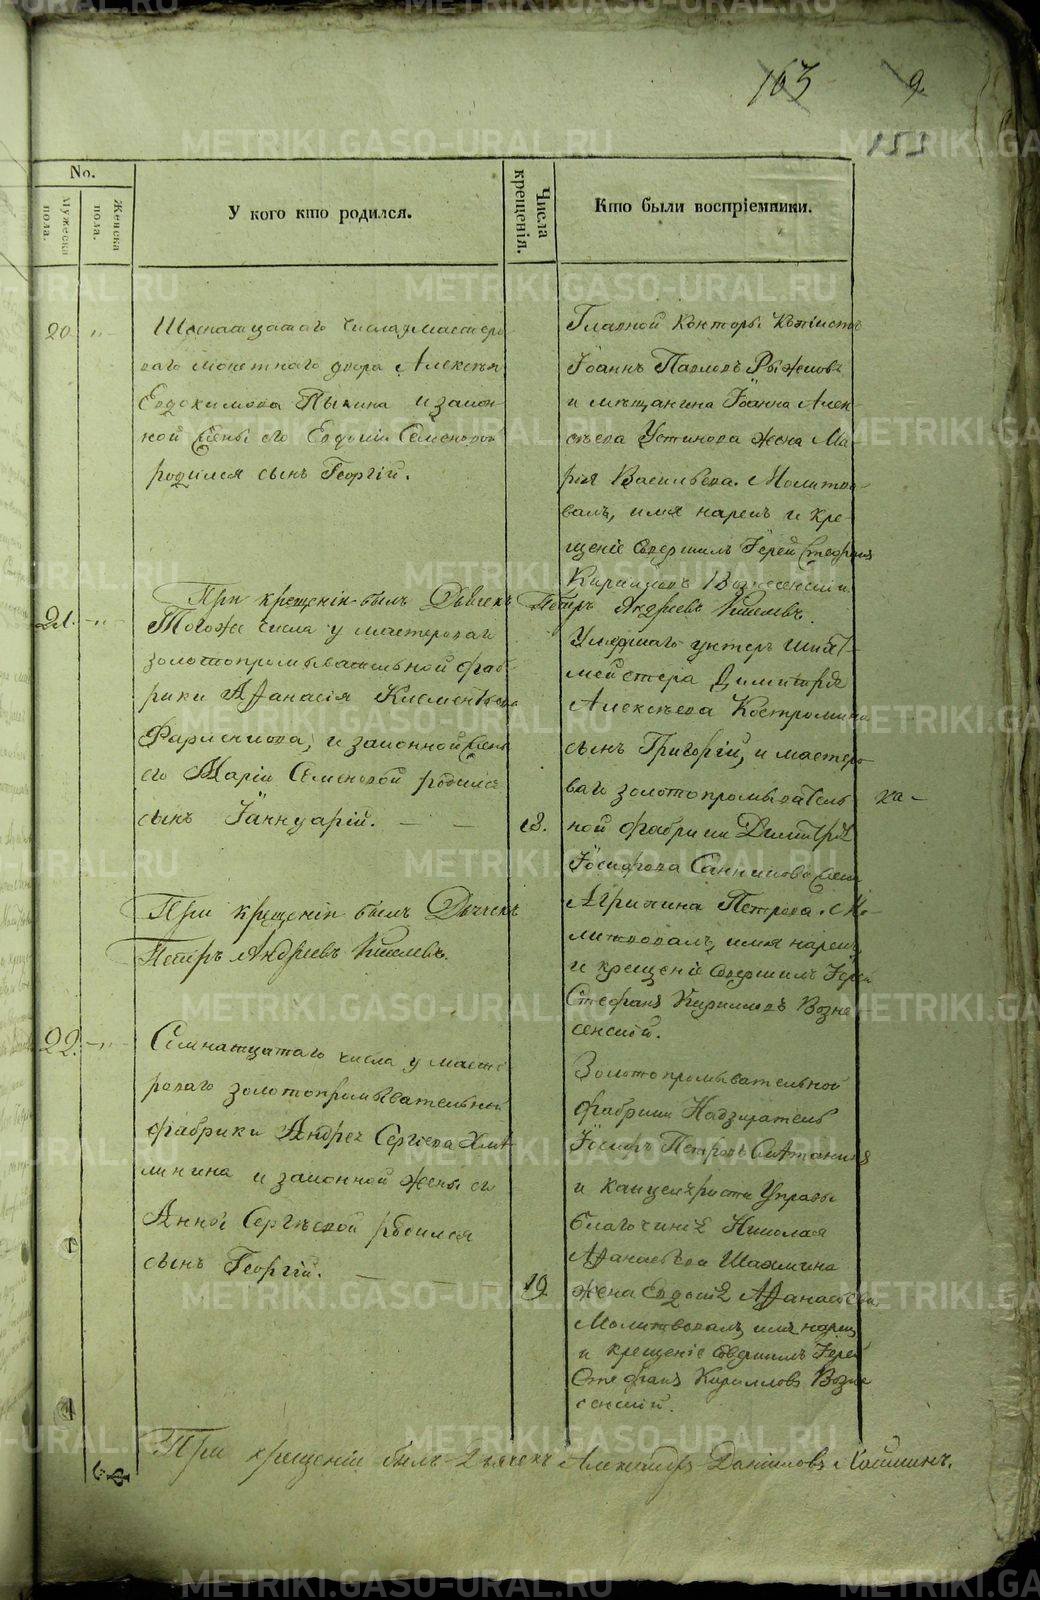 163 9
No.
Мужеска пола.
Женска пола.
У кого кто родился.
Числа крещенія.
Кто были воспріемники.
20.
Шеснатцатаго числа у мастеро
ваго монетнаго двора Алексѣя
Евдокимова Пынина и закон
ной жены его Евдокіи Семеновой
родился сынъ Георгій.
Главной Конторы
Іоаннъ Павловъ Рыжковъ
и мѣщанина Іоанна Алек
сѣева Устинова жена Ма
рія Васильева. Молитво
валъ, имя нарекъ и кре
щеніе совершилъ Іерей Стефанъ
Кирилловъ Вознесенскій.
При крещеніи былъ Дьячекъ Петръ Андреевъ
21.
Тогоже числа у мастероваго
золотопромывательной фаб
рики Афанасія Климентьева
и законной жены
его Маріи Семеновой родился
сынъ Іаннуарій.
18.
При крещеніи былъ Дьячекъ
Петръ Андреевъ
унтеръ шихт
мейстера Димитрія
Алексѣева Костромина
сынъ Григорій, и мастеро
ваго золотопромыватель
ной фабрики Димитрія
Іосифова жена
Агрипина Петрова. Мо
литвовалъ, имя нарекъ
и крещеніе совершилъ Іерей
Стефанъ Кирилловъ Возне
сенскій.
22.
Семнатцатаго числа у масте
роваго золотопромывательной
фабрики Андрея Сергѣева Хмѣ
линина и законной жены его
Анны Сергѣевой родился
сынъ Георгій.
19.
Золотопромывательной
фабрики Надзиратель
Іосифъ Петровъ
и канцеляриста Управы
благочинія Николая
Афанасьева
жена Евдокія Афанасьева
Молитвовалъ, имя нарекъ
и крещеніе совершилъ Іерей
Стефанъ Кирилловъ Возне
сенскій.
При крещеніи былъ Дьячекъ Александръ Даниловъ
METRIKI.GASO-URAL.RU